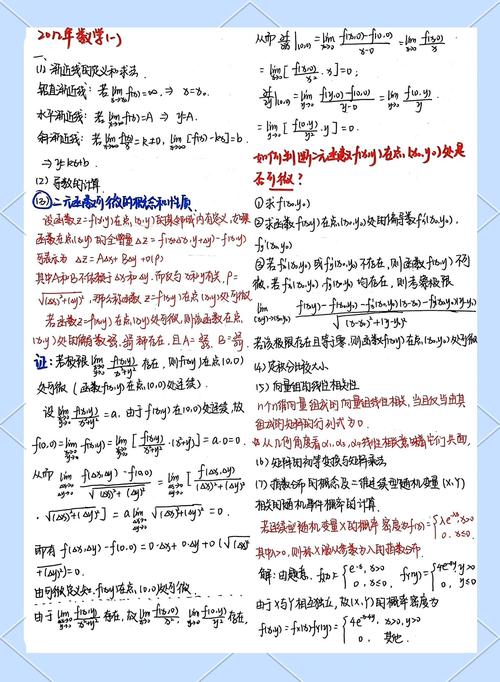 2012年数学(一)
一、
(1) 渐近线的定义和求法.
铅直渐近线: 若lim_{x→x₀}f(x)=∞, ⇒ x=x₀.
水平渐近线: 若lim_{x→∞}f(x)=A ⇒ y=A.
斜渐近线: 若lim_{x→∞}f(x)/x=k≠0, lim_{x→∞}[f(x)-kx]=b
⇒ y=kx+b.
(2) 导数的计算.
(3) 二元函数可微的概念和性质.
设函数z=f(x,y)在点(x,y)的某邻域内有定义, 如果
函数在点(x,y)的全增量Δz=f(x+Δx,y+Δy)-f(x,y)
可表示为 Δz=AΔx+BΔy+o(ρ)
其中A和B不依赖于Δx和Δy, 而仅与x和y有关, ρ=
√((Δx)²+(Δy)²), 那么称函数z=f(x,y)在点(x,y)处可微.
若函数z=f(x,y)在点(x,y)处可微, 则该函数在点
(x,y)处的偏导数
存在, 且A=
B=
证: 若极限lim_{x→0,y→0} f(x,y)/(x²+y²) 存在, 则f(x,y)在(0,0)
处可微 (函数f(x,y)在点(0,0)处连续).
设lim_{x→0,y→0} f(x,y)/(x²+y²)=a. 由于f(x,y)在(0,0)处连续, 故
f(0,0)=lim_{x→0,y→0}f(x,y)=lim_{x→0,y→0}[f(x,y)/(x²+y²)·(x²+y²)]=a·0=0.
从而 lim_{Δx→0,Δy→0} (f(Δx,Δy)-f(0,0))/√((Δx)²+(Δy)²)=lim_{Δx→0,Δy→0}[f(Δx,Δy)/((Δx)²+(Δy)²)
·√((Δx)²+(Δy)²)]=a lim_{Δx→0,Δy→0}√((Δx)²+(Δy)²)=0.
即有 f(Δx,Δy)-f(0,0)=0·Δx+0·Δy+o(√((Δx)²
+(Δy)²)=0.
由可微定义知, f(x,y)在点(0,0)处可微
由于lim_{x→0,y→0} f(x,y)/(x²+y²)存在, 故lim_{x→0} f(x,0)/x², lim_{y→0} f(0,y)/y²存在,
从而 ∂f/∂x|(0,0)=lim_{x→0} (f(x,0)-f(0,0))/(x-0)=lim_{x→0} f(x,0)/x
=lim_{x→0}[f(x,0)/x²·x]=0;
∂f/∂y|(0,0)=lim_{y→0} (f(0,y)-f(0,0))/(y-0)=lim_{y→0} f(0,y)/y
=lim_{y→0}[f(0,y)/y²·y]=0.
如何判断二元函数f(x,y)在点(x₀,y₀)处是
否可微?
① 求f(x₀,y₀)
② 求函数f(x,y)在点(x₀,y₀)处的偏导数f'x(x₀,y₀),
f'y(x₀,y₀)
③ 若f'x(x₀,y₀)或f'y(x₀,y₀)不存在, 则函数f(x,y)不可
微, 若f'x(x₀,y₀), f'y(x₀,y₀)均存在, 则考察极限
lim_{(x,y)→(x₀,y₀)} (f(x,y)-f(x₀,y₀)-f'x(x₀,y₀)(x-x₀)-f'y(x₀,y₀)(y-y₀))/√((x-x₀)²+(y-y₀)²)
若该极限存在且等于零, 则函数f(x,y)在点(x₀,y₀)处可微
(4) 定积分比较大小.
(5) 向量组的线性相关性
n个n维向量组成的向量组线性相关, 当且仅当由其
组成的矩阵的行列式为0.
从几何角度看α₁,α₃,α₄线性相关意味着它们共面.
(6) 矩阵的初等变换与矩阵乘法
(7) 指数分布的概念及二维连续型随机变量(X,Y)
相关的随机事件概率的计算.
若连续型随机变量X的概率密度为f(x)={λe^{-λx}, x>0
0, x≤0.
其中λ>0, 则称X服从参数为λ的指数分布.
解: 由题意, fX(x)={e^{-x}, x>0 fY(y)={4e^{-4y}, y>0
0, x≤0. 0, y≤0.
由于X与Y相互独立, 故(X,Y)的概率密度为
f(x,y)=fX(x)fY(y)={4e^{-x-4y}, x>0, y>0
0, 其他.